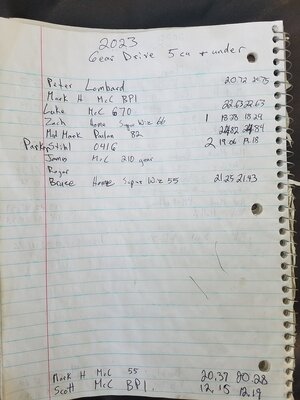 2023
Gear Drive 5 cu + under
Peter Lombard 20.72
Mark H McC BP1
Luke McC 670 22.63 22.63
Zach Home Super Wiz 66 1 18.78 18.29
Mad Mark Poulan 82 24.84
Parker Stihl 041G 2 19.06
James McC 210 gear
Roger
Bruce Home Super Wiz 55 21.25 21.43
Mark H McC 55 20.37 20.28
Scott McC BP1. 12.15 12.19